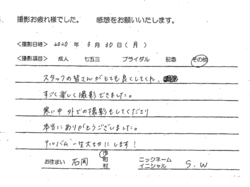 撮影お疲れ様でした。 感想をお願いいたします。
<撮影日時> 2020年 8月 30日 (月)
<撮影項目> 成人 七五三 ブライダル 記念 その他
スタッフの皆さんがとても良くしてくれ、
すごく楽しく撮影できました。
寒い中 外での撮影もしてくださり
本当にありがとうございました。
アルバム一生大切にします!
お住まい 石岡 市 町 村 ニックネーム イニシャル S.W